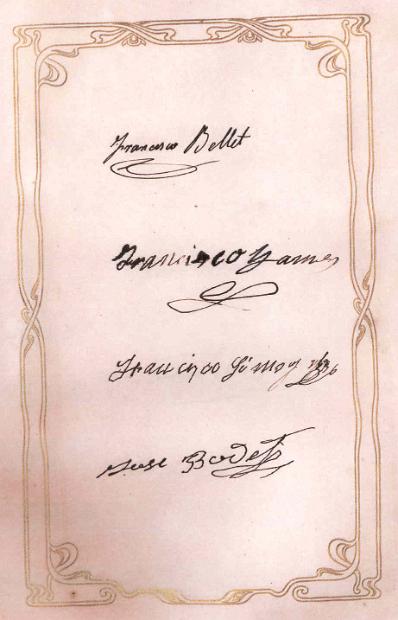 Francisco Bellet
Francisco Games
Francisco Gimo y
Jose Bodet